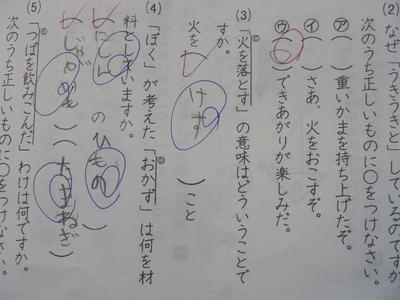 (2) なぜ「うきうきと」しているのですか
次のうち正しいものに○をつけなさい。
㋐（　）重いかまを持ち上げたぞ。
㋑（　）さあ、火をおこすぞ。
㋒（○）できあがりが楽しみだ。
(3) 「火を落とす」の意味はどういうことで
すか。
火を（けす）こと
(4) 「ぼく」が考えた「おかず」は何を材
料としていますか。
（にしんのひもの）
（じゃがいも）（たまねぎ）
(5) 「つばを飲みこんだ」わけは何ですか。
次のうち正しいものに○をつけなさい。